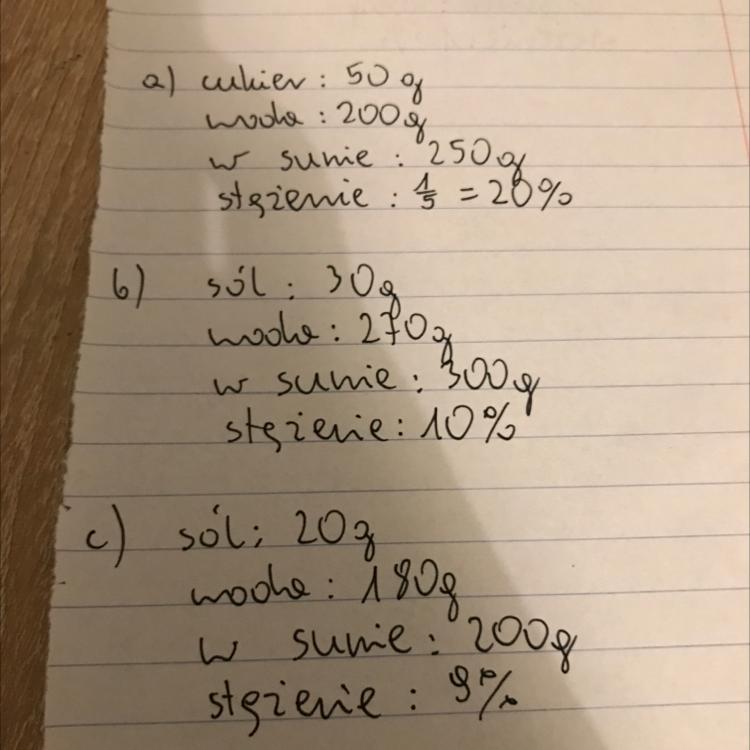 a) cukier : 50 g
woda : 200g
w sumie : 250g
stężenie : 1/5 = 20%
b) sól : 30g
woda : 270g
w sumie : 300g
stężenie : 10%
c) sól : 20g
woda : 180g
w sumie : 200g
stężenie : 9%